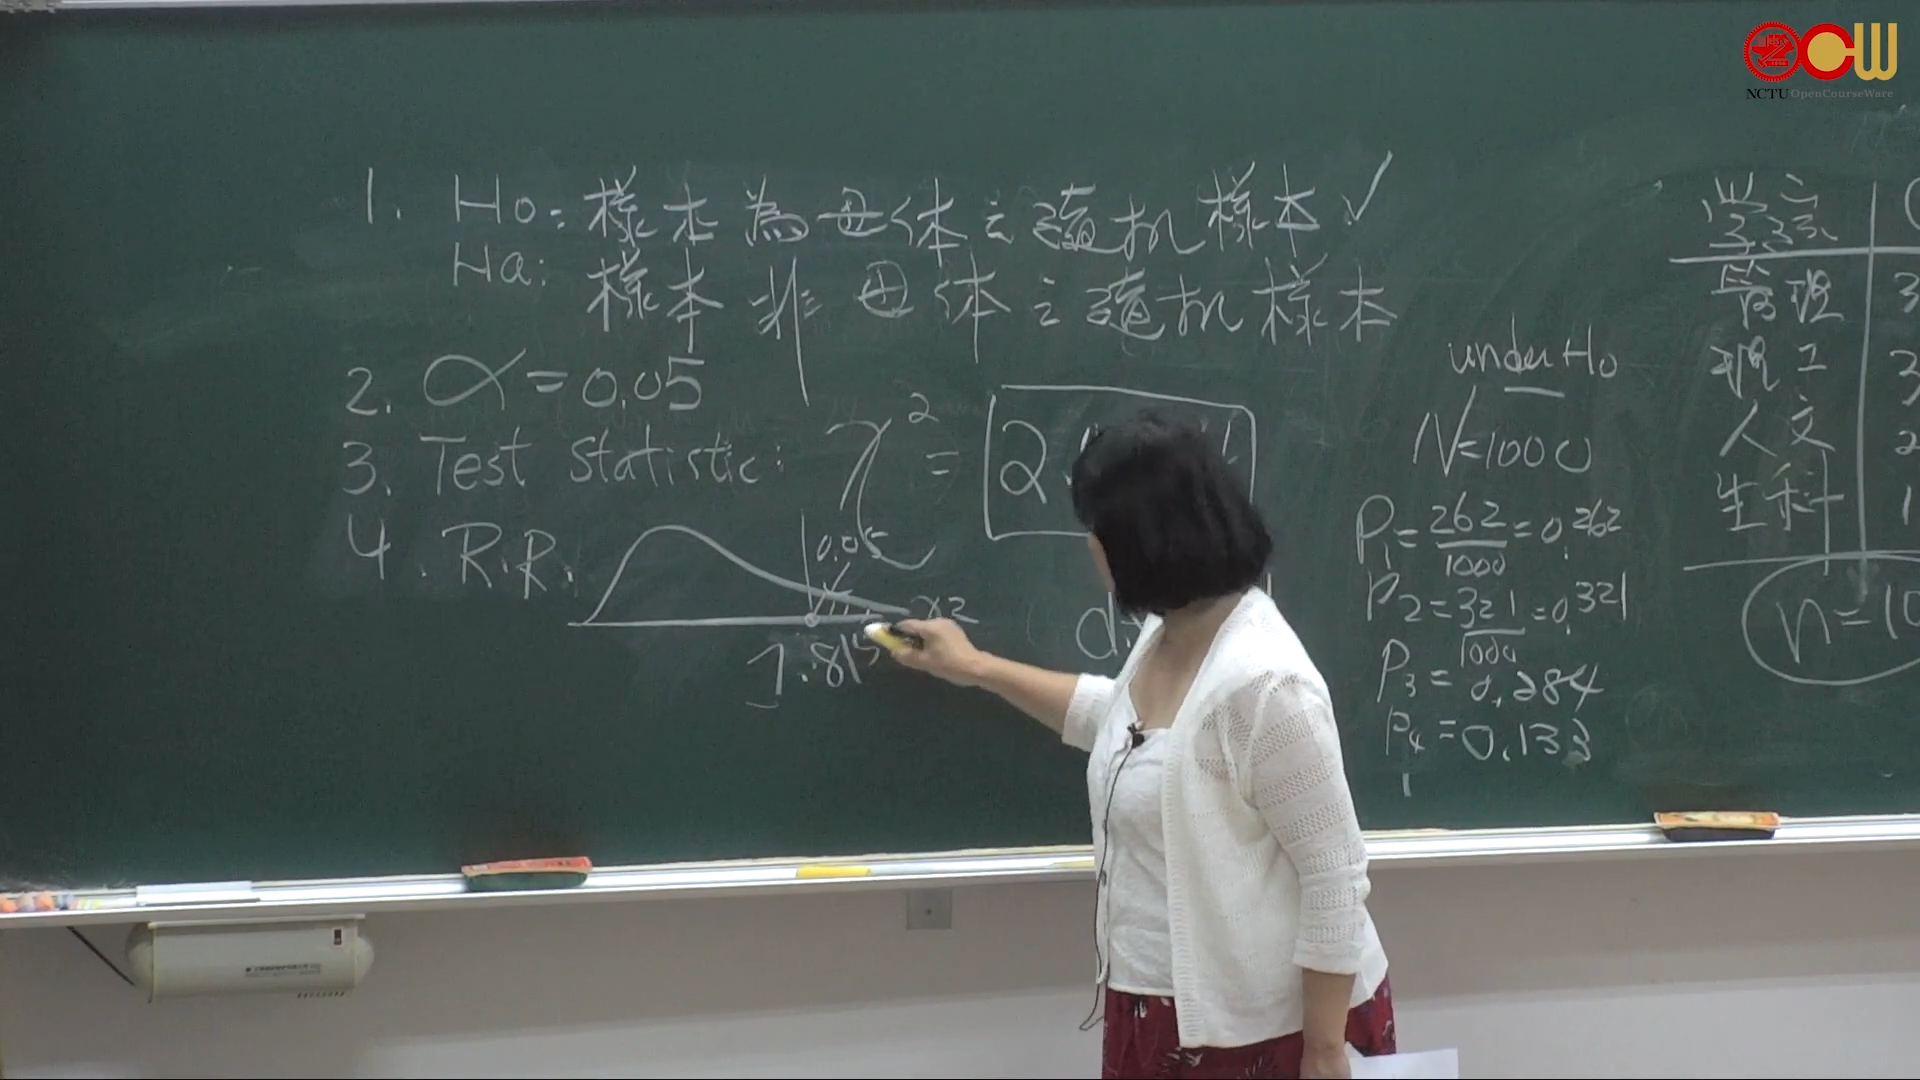 NCTU OpenCourseWare
1. Ho: 樣本為母体之隨机樣本 ✓
Ha: 樣本非母体之隨机樣本
2. α = 0.05
3. Test Statistic: χ² = 2.
4. R.R.
0.05
χ²
7.815
d.
under Ho
N=1000
P₁ = 262/1000 = 0.262
P₂ = 321/1000 = 0.321
P₃ = 0.284
P₄ = 0.133
学系
管理 3
理工 3
人文 2
生科 1
n=10